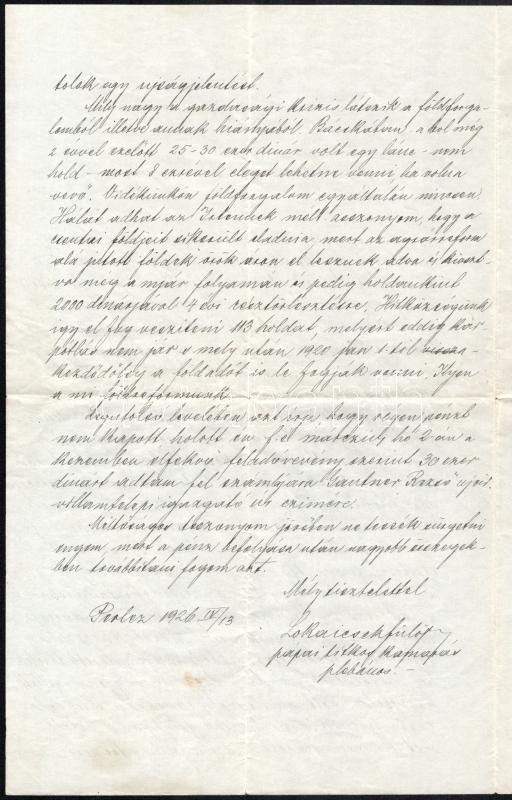 tolok egy ujságjelentést.
Mily nagy a gazdasági krizis látszik a földforga-
lomból illetve annak hiányából. Bácskában, a hol még
2 évvel ezelőtt 25-30 ezer dinár volt egy lánc - nem
hold - most 8 ezrével eleget lehetne venni ha volna
vevő. Vidékünkön földforgalom egyáltalán nincsen.
Hálát adhat az Istennek mélt. asszonyom, hogy a
csentai földjeit sikerült eladnia, mert az agrárreform
alá jutott földek örök áron el lesznek adva és kiosz-
va még a nyár folyamán és pedig holdankint
2000 donárjával 4 évi résztörlesztésre. Hitközségünk
igy el fog veszíteni 113 holdat, melyért eddig kár-
pótlás nem jár s mely után 1920 jan 1-től
kezdődőleg a földadót is le fogják venni. Ilyen
a mi földreformunk.
Legutolsó levelében azt írja, hogy régen pénzt
nem kapott holott én f. é. március hó 2-án a
kezemben elfekvő feladóvevény szerint 30 ezer
dinárt adtam fel számlájára Gantner Rezső
villamtelepi igazgató úr címére.
Méltóságos Asszonyom pénzében ne tessék
mert a pénz befolyása után nagyobb összegek-
ben továbbitani fogom azt.
Mély tisztelettel
Perlez 1926 IV/13
Lokaicsek Fülöp
pápai titkos kamarás
plébános.-